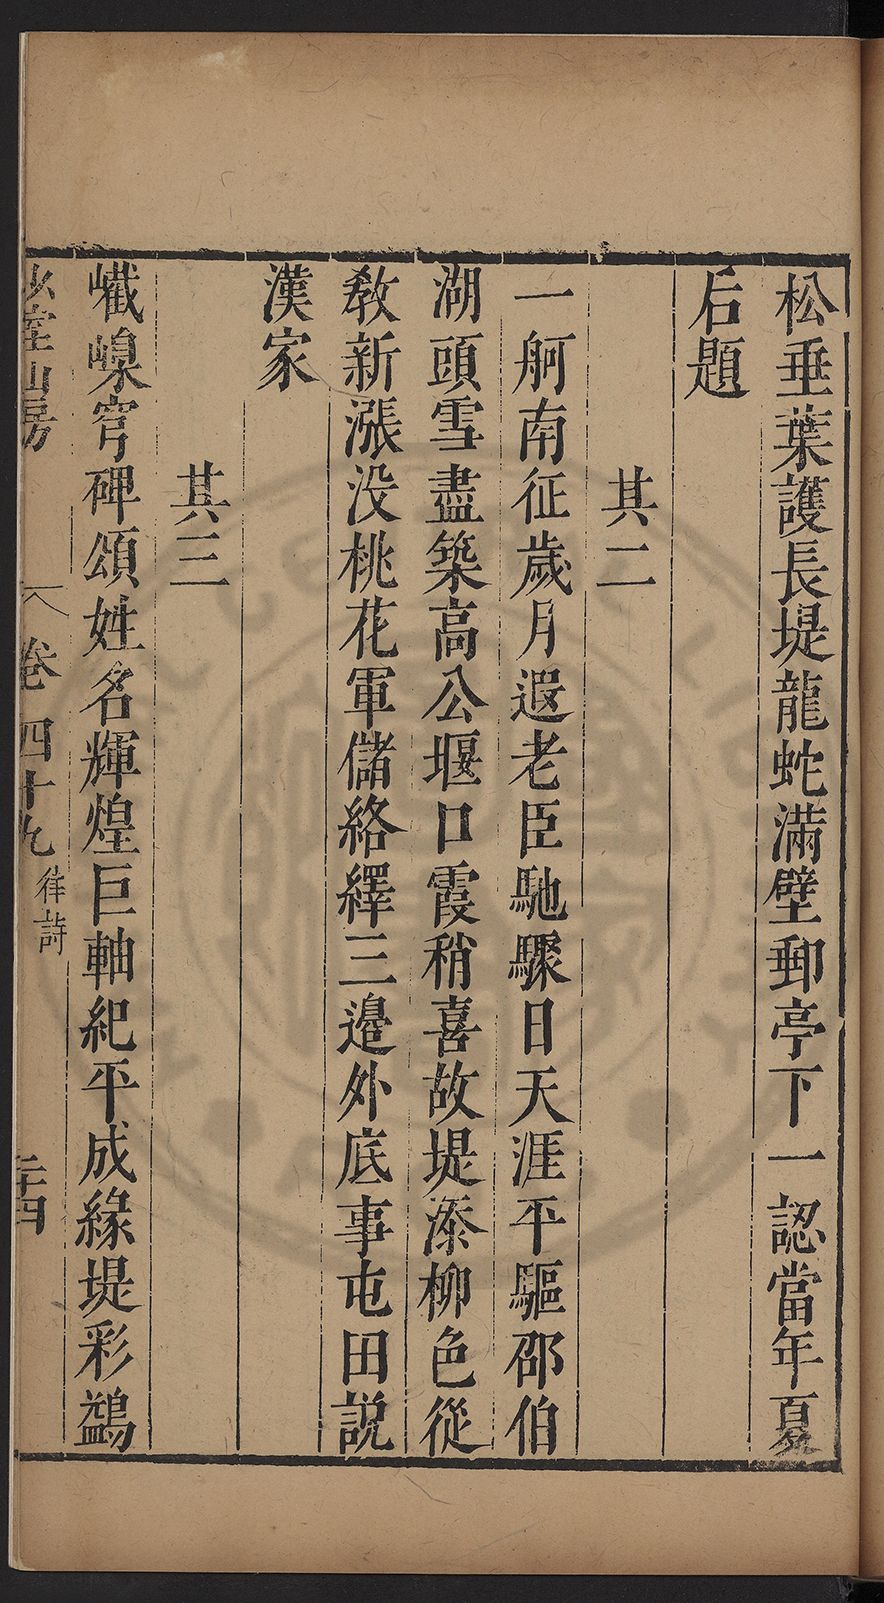 松垂葉護長堤龍蛇滿壁郵亭下一認當年夏
后題
其二
一舸南征歲月遐老臣馳驟日天涯平驅邵伯
湖頭雪盡築高公堰口霞稍喜故堤添柳色從
教新漲没桃花軍儲絡繹三邉外底事屯田説
漢家
其三
巀嵲穹碑頌姓名輝煌巨軸紀平成緣堤彩鷁
少室山房
卷四十九
律詩
二十四